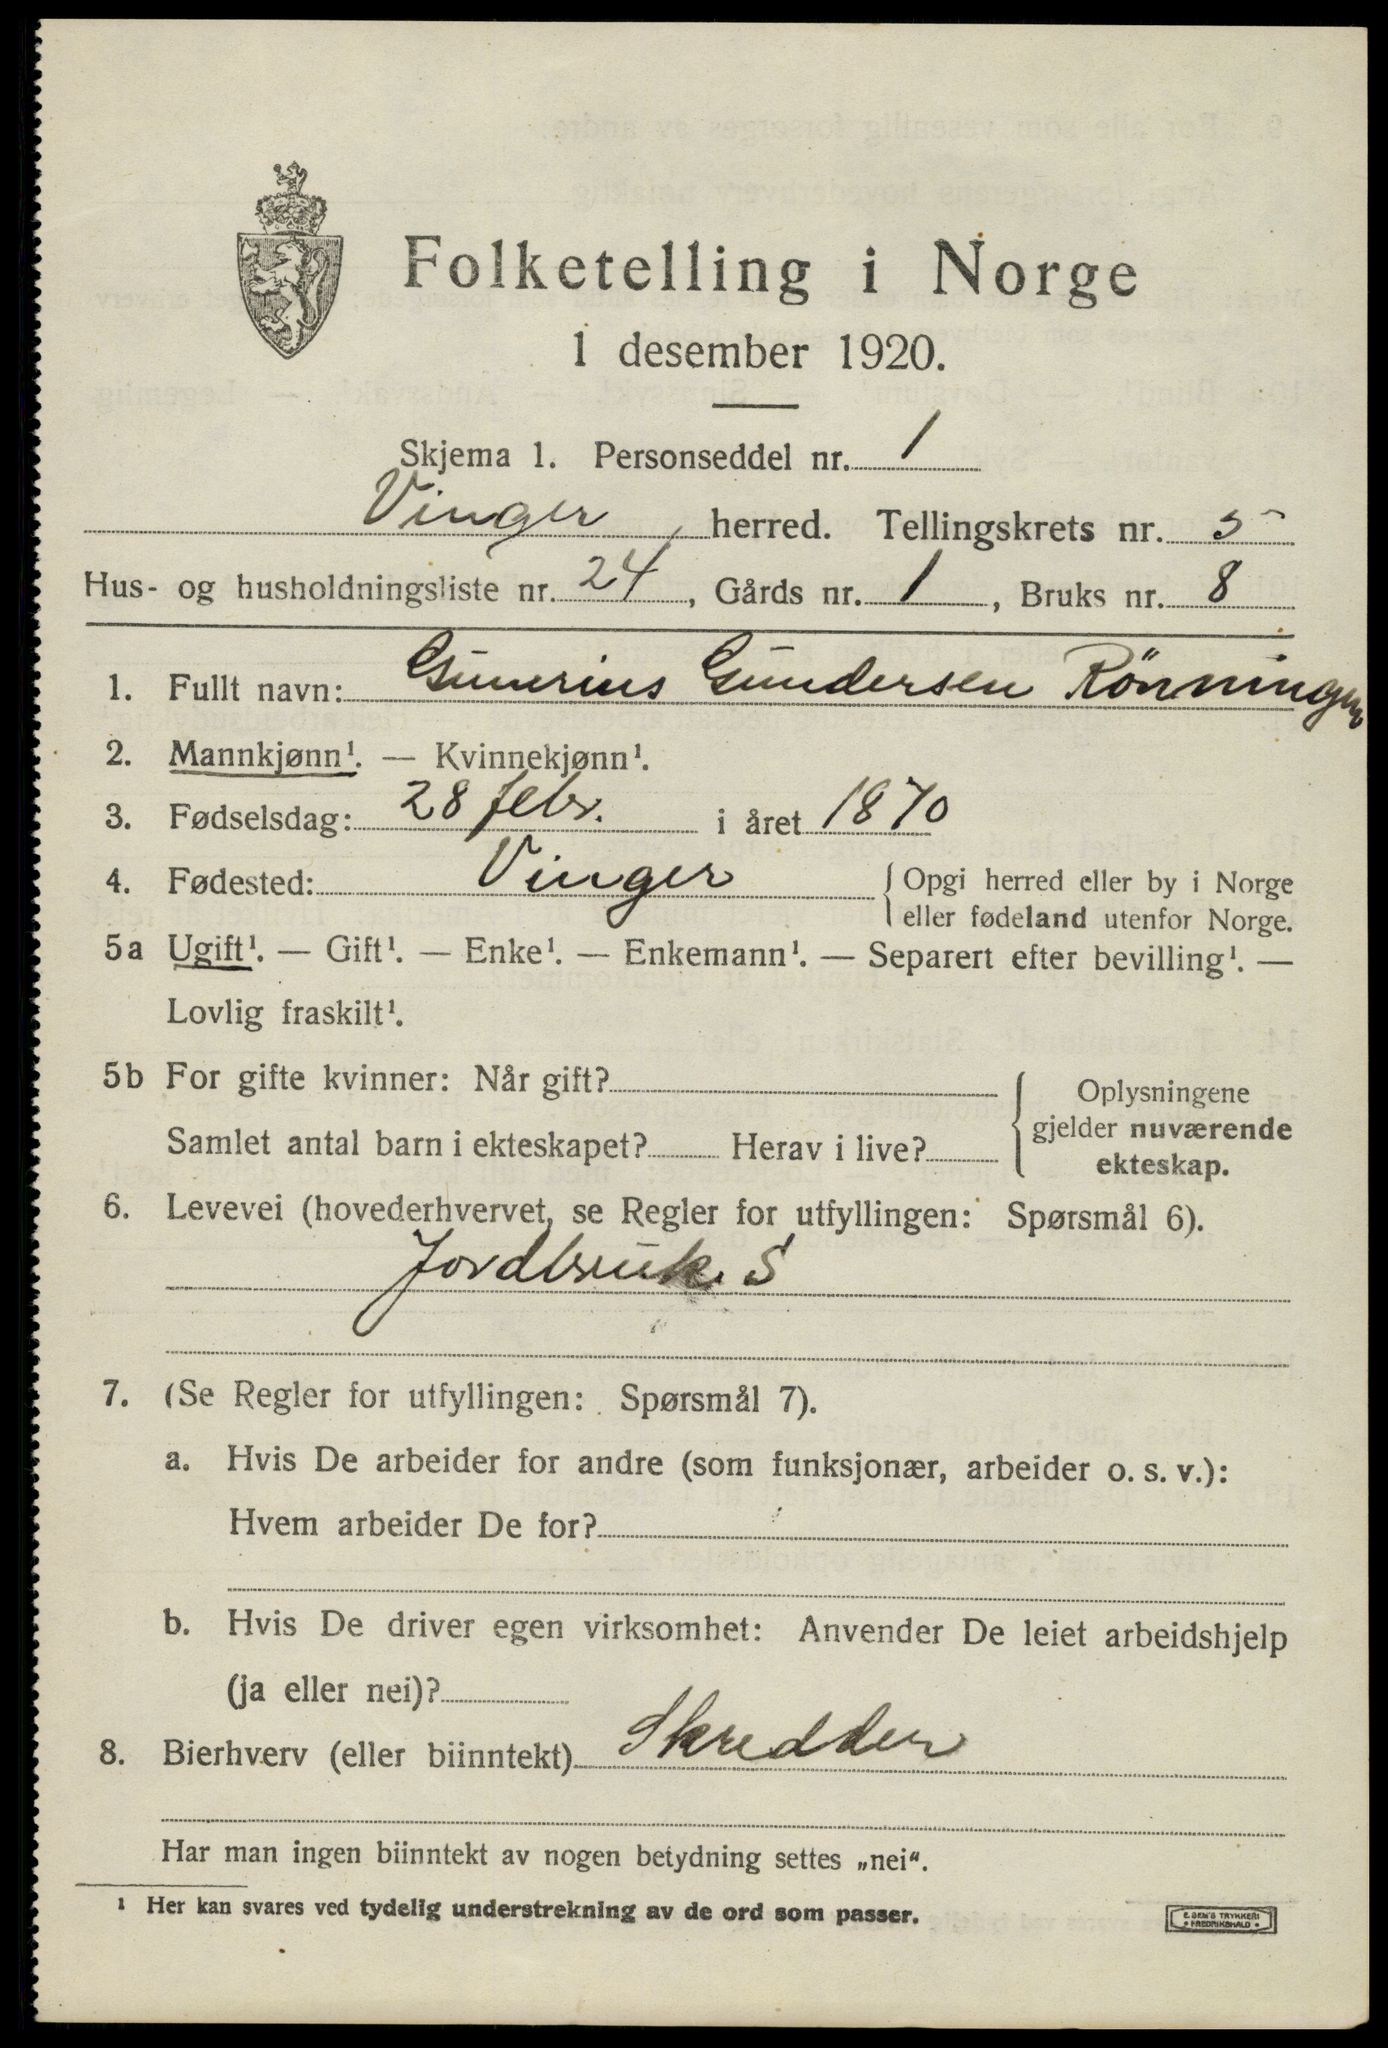 Folketelling i Norge
1 desember 1920.
Skjema 1. Personseddel nr. 1
Vinger herred. Tellingskrets nr. 5
Hus- og husholdningsliste nr. 24, Gårds nr. 1, Bruks nr. 8
1. Fullt navn: Gunerius Gundersen Rönningen
2. Mannkjønn¹. — Kvinnekjønn¹.
3. Fødselsdag: 28 febr. i året 1870
4. Fødested: Vinger { Opgi herred eller by i Norge
eller fødeland utenfor Norge.
5a Ugift¹. — Gift¹. — Enke¹. — Enkemann¹. — Separert efter bevilling¹. —
Lovlig fraskilt¹.
5b For gifte kvinner: Når gift? { Oplysningene
gjelder nuværende
Samlet antal barn i ekteskapet? Herav i live? ekteskap.
6. Levevei (hovederhvervet, se Regler for utfyllingen: Spørsmål 6).
Jordbruk. S
7. (Se Regler for utfyllingen: Spørsmål 7).
a. Hvis De arbeider for andre (som funksjonær, arbeider o. s. v.):
Hvem arbeider De for?
b. Hvis De driver egen virksomhet: Anvender De leiet arbeidshjelp
(ja eller nei)?
8. Bierhverv (eller biinntekt) Skredder
Har man ingen biinntekt av nogen betydning settes „nei“.
¹ Her kan svares ved tydelig understrekning av de ord som passer.
E. SEM'S TRYKKERI
FREDRIKSHALD